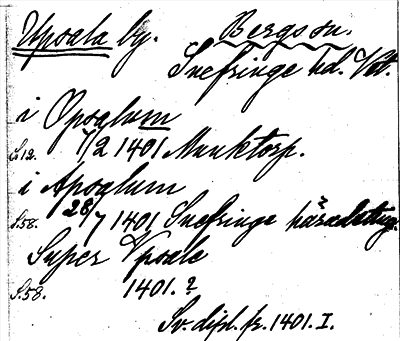 Upsala by. Bergs sn.
Snefringe hd. Vstl.
i Opsalum
S.12. 7/2 1401 Munktorp.
i Apsalum
S.58. 28/7 1401 Snefringe häradsting.
Super Vpsale
S.58. 1401.?
Sv. dipl. fr. 1401. I.